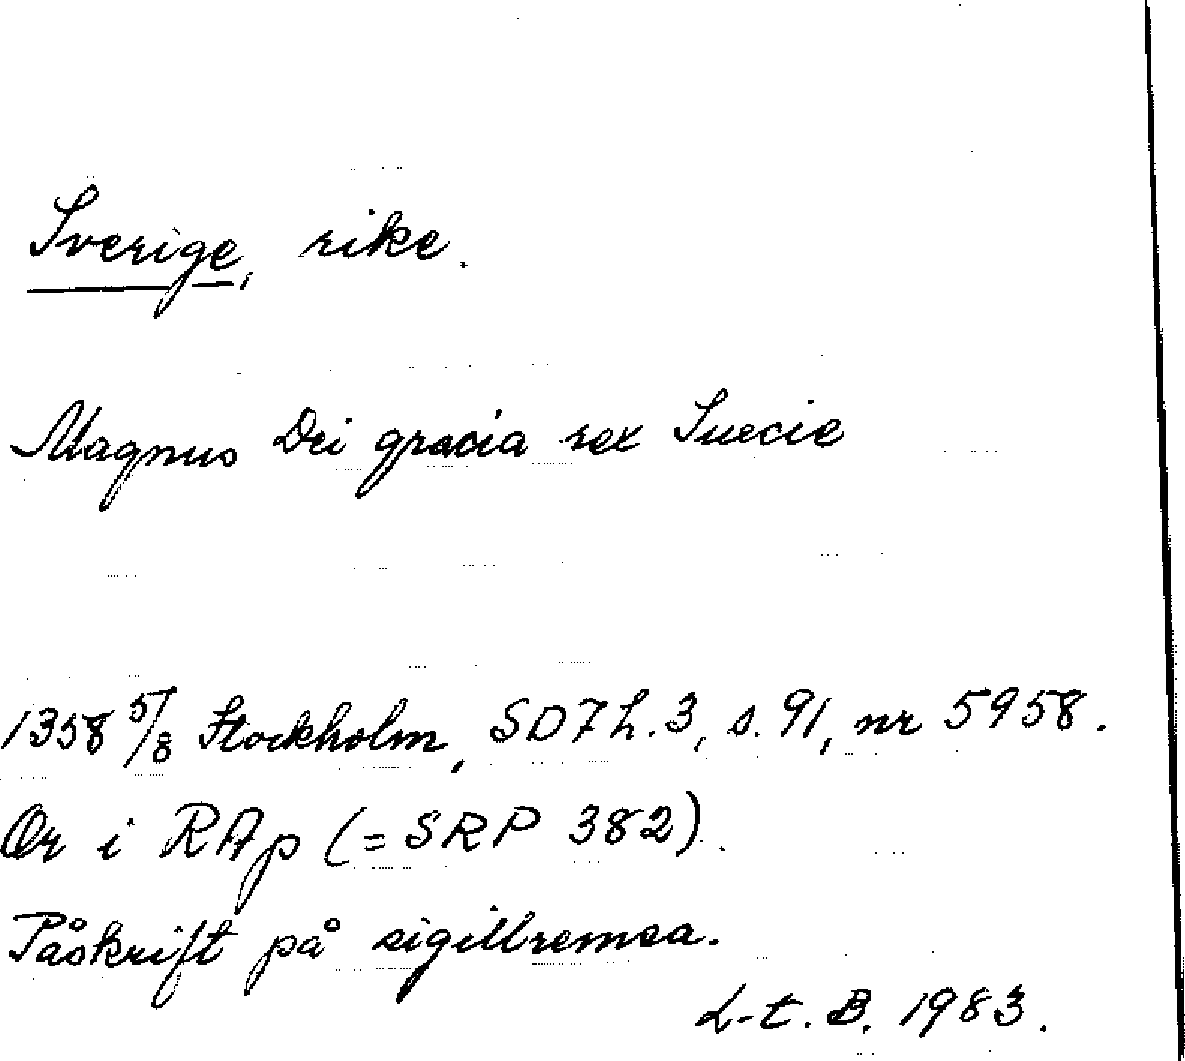 Sverige, rike.
Magnus Dei gracia rex Suecie
1358 5/8 Stockholm, SD7 h.3, s. 91, nr 5958.
Or i RAp (=SRP 382).
Påskrift på sigillremsa.
L-t. B. 1983.